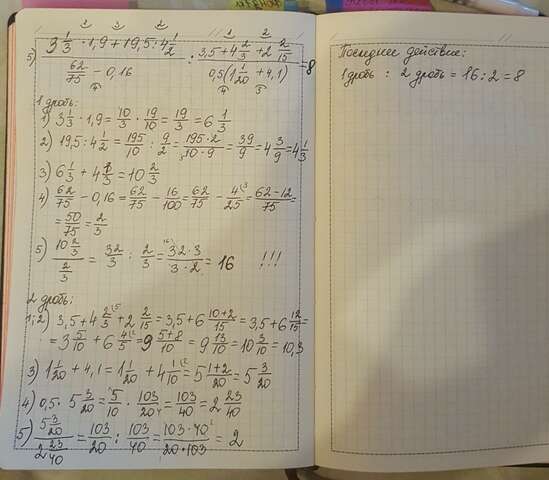 1 3 2 1 2
5) (3 1/3 · 1,9 + 19,5 : 4 1/2) / (62/75 − 0,16) : (3,5 + 4 2/3 + 2 2/15) / (0,5(1 1/20 + 4,1)) = 8
4 4 3
1 дробь:
1) 3 1/3 · 1,9 = 10/3 · 19/10 = 19/3 = 6 1/3
2) 19,5 : 4 1/2 = 195/10 : 9/2 = 195·2/10·9 = 39/9 = 4 3/9 = 4 1/3
3) 6 1/3 + 4 1/3 = 10 2/3
4) 62/75 − 0,16 = 62/75 − 16/100 = 62/75 − 4/25 = 62−12/75 =
= 50/75 = 2/3
5) (10 2/3)/(2/3) = 32/3 : 2/3 = 32·3/3·2 = 16 !!!
2 дробь:
1;2) 3,5 + 4 2/3 + 2 2/15 = 3,5 + 6 10+2/15 = 3,5 + 6 12/15 =
= 3 5/10 + 6 4/5 = 9 5+8/10 = 9 13/10 = 10 3/10 = 10,3
3) 1 1/20 + 4,1 = 1 1/20 + 4 1/10 = 5 1+2/20 = 5 3/20
4) 0,5 · 5 3/20 = 5/10 · 103/20 = 103/40 = 2 23/40
5) (5 3/20)/(2 23/40) = 103/20 : 103/40 = 103·40/20·103 = 2
Последнее действие:
1 дробь : 2 дробь = 16 : 2 = 8